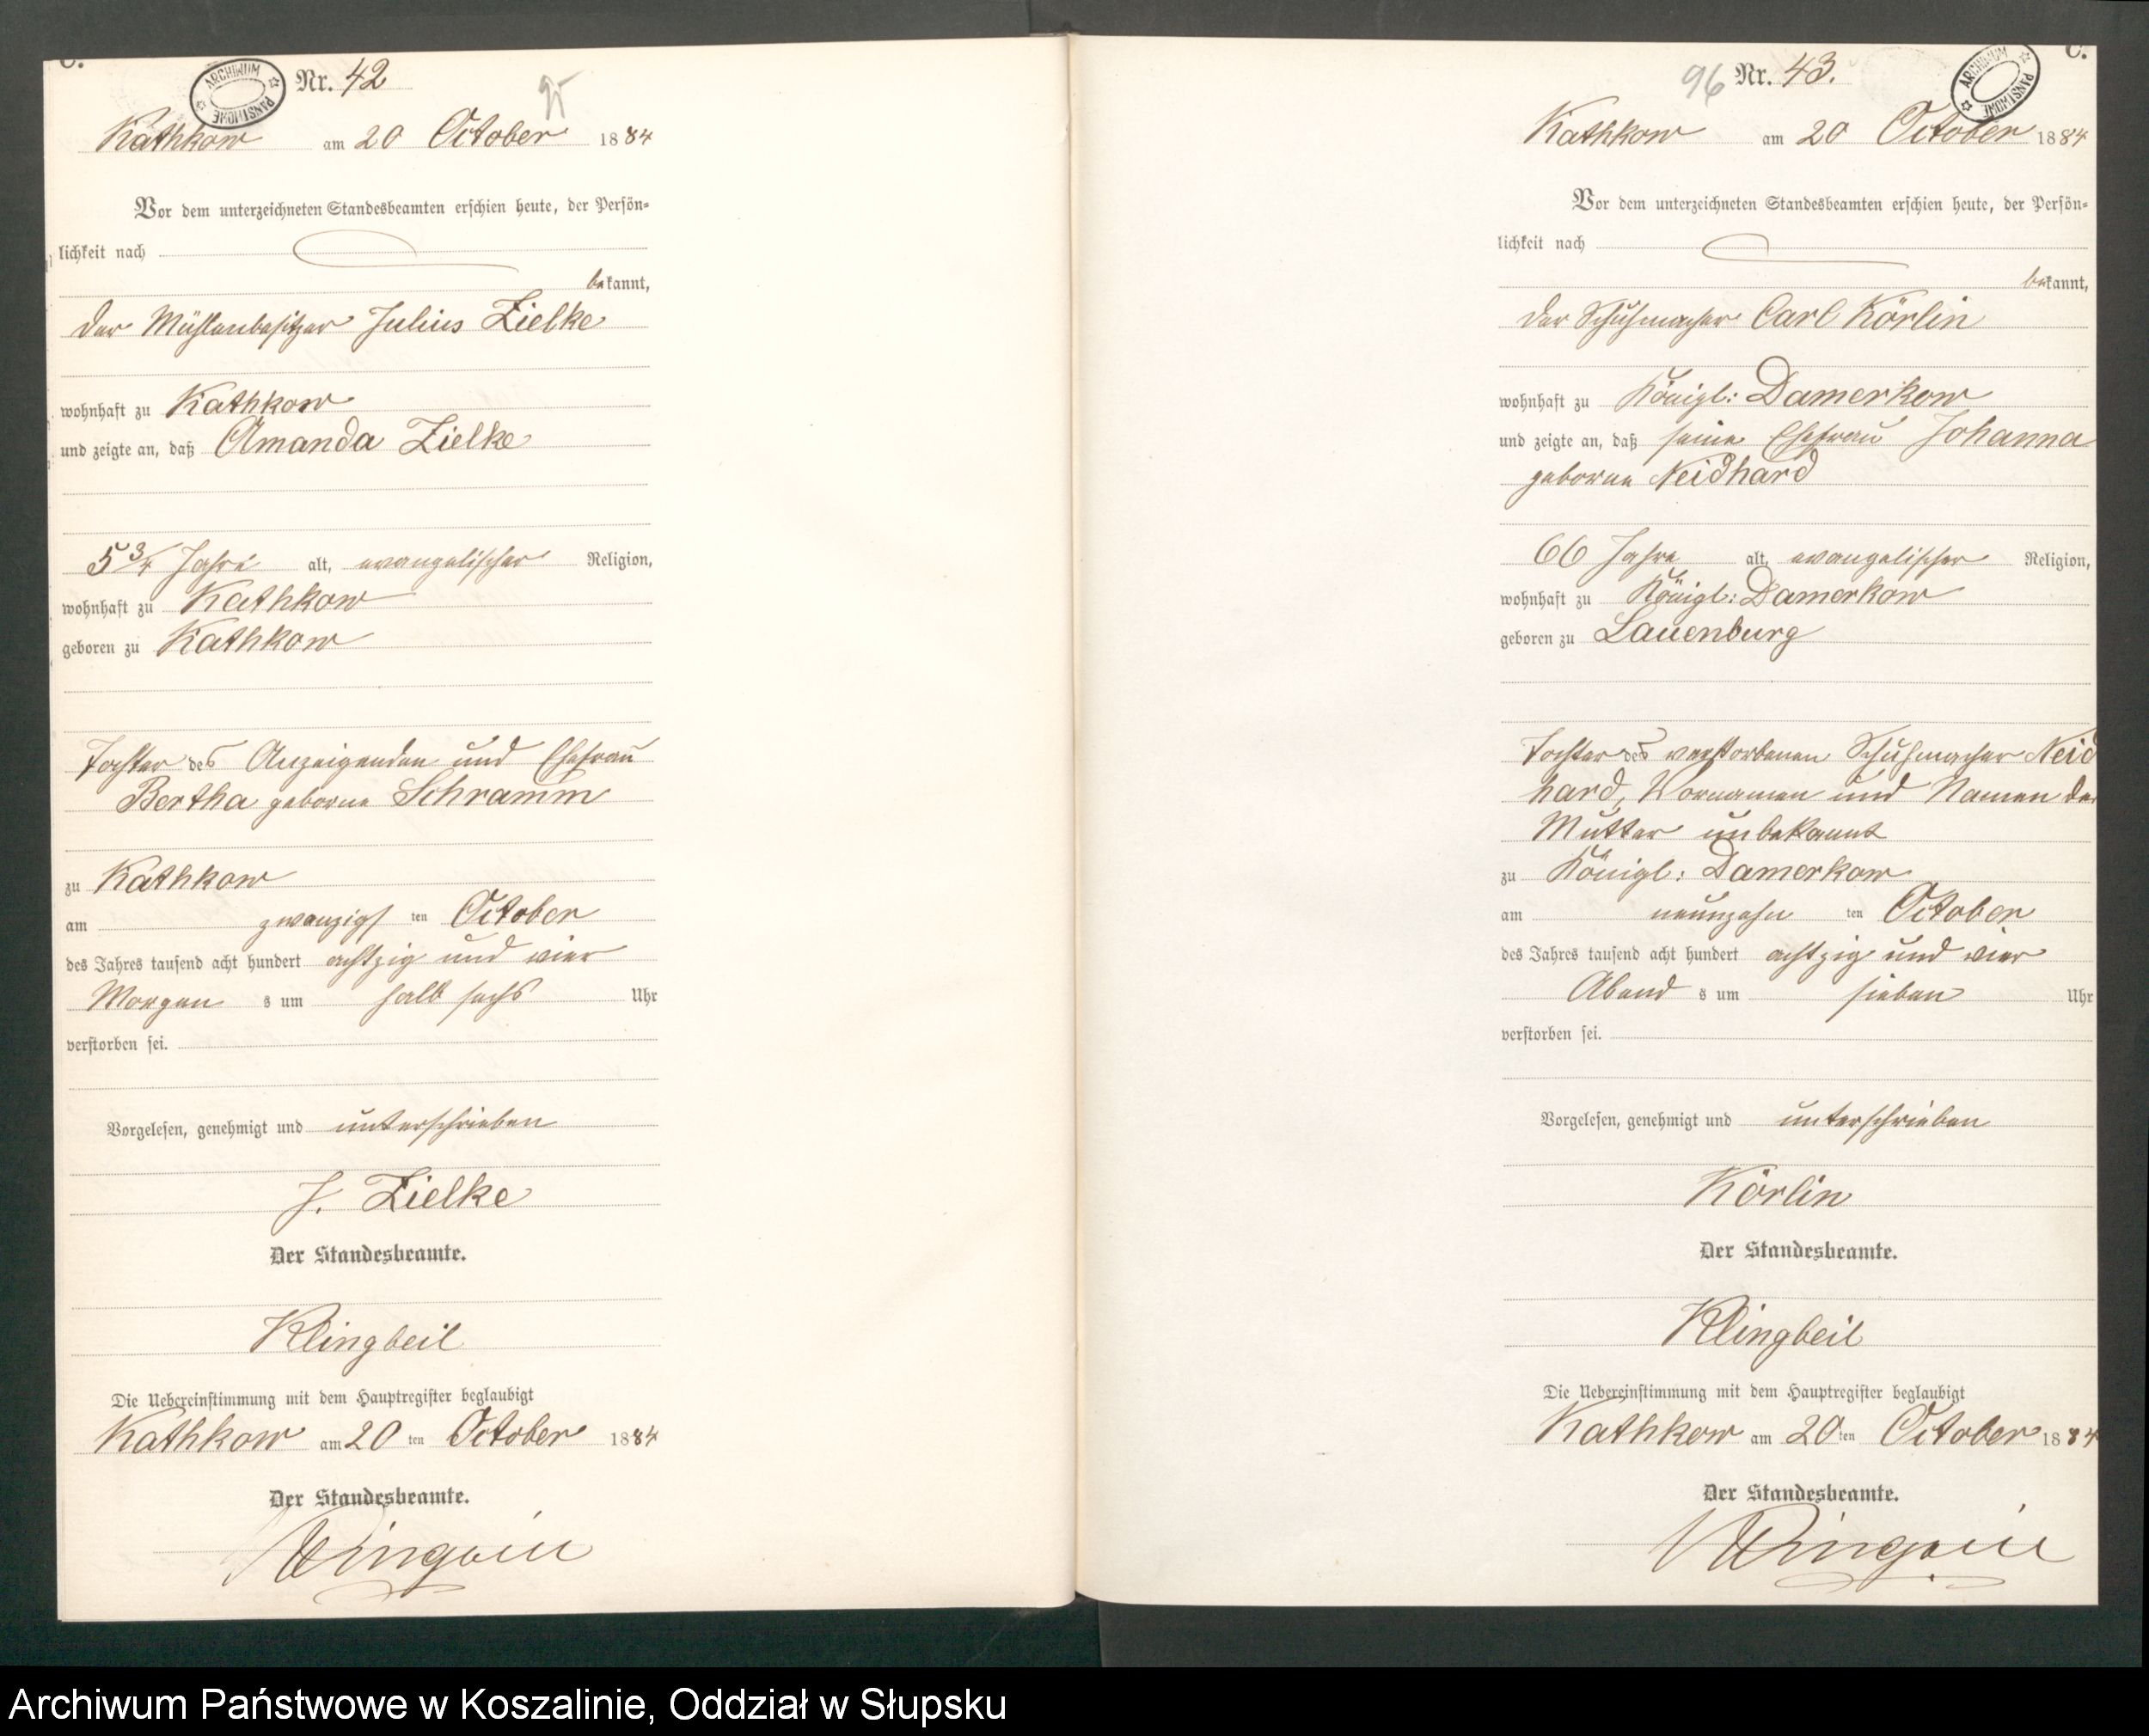 C.
ARCHIWUM PAŃSTWOWE
Nr. 42
95
Kathkow am 20 October 1884
Vor dem unterzeichneten Standesbeamten erschien heute, der Persön-
lichkeit nach
bekannt,
der Mühlenbesitzer Julius Zielke
wohnhaft zu Kathkow
und zeigte an, daß Amanda Zielke
5 3/4 Jahre alt, evangelischer Religion,
wohnhaft zu Kathkow
geboren zu Kathkow
Tochter des Anzeigenden und Ehefrau
Bertha geborne Schramm
zu Kathkow
am zwanzigsten October
des Jahres tausend acht hundert achtzig und vier
Morgens um halb sechs Uhr
verstorben sei.
Vorgelesen, genehmigt und unterschrieben
J. Zielke
Der Standesbeamte.
Klingbeil
Die Uebereinstimmung mit dem Hauptregister beglaubigt
Kathkow am 20ten October 1884
Der Standesbeamte.
Klingbeil
C.
ARCHIWUM PAŃSTWOWE
96 Nr. 43.
Kathkow am 20 October 1884
Vor dem unterzeichneten Standesbeamten erschien heute, der Persön-
lichkeit nach
bekannt,
der Schuhmacher Carl Körlin
wohnhaft zu Königl: Damerkow
und zeigte an, daß seine Ehefrau Johanna
geborne Neidhard
66 Jahre alt, evangelischer Religion,
wohnhaft zu Königl: Damerkow
geboren zu Lauenburg
Tochter des verstorbenen Schuhmacher Neid
hard, Vornamen und Namen der
Mutter unbekannt
zu Königl: Damerkow
am neunzehnten October
des Jahres tausend acht hundert achtzig und vier
Abends um sieben Uhr
verstorben sei.
Vorgelesen, genehmigt und unterschrieben
Körlin
Der Standesbeamte.
Klingbeil
Die Uebereinstimmung mit dem Hauptregister beglaubigt
Kathkow am 20ten October 1884
Der Standesbeamte.
Klingbeil
Archiwum Państwowe w Koszalinie, Oddział w Słupsku